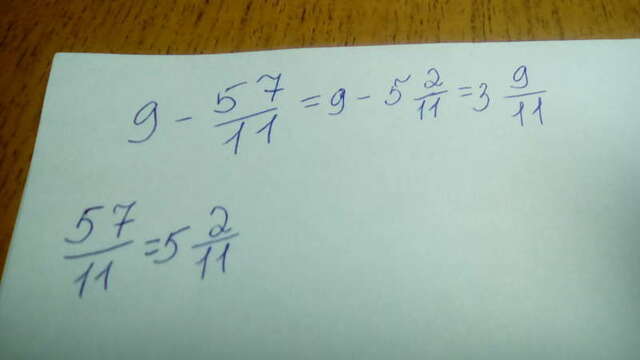 9 - 57/11 = 9 - 5 2/11 = 3 9/11
57/11 = 5 2/11